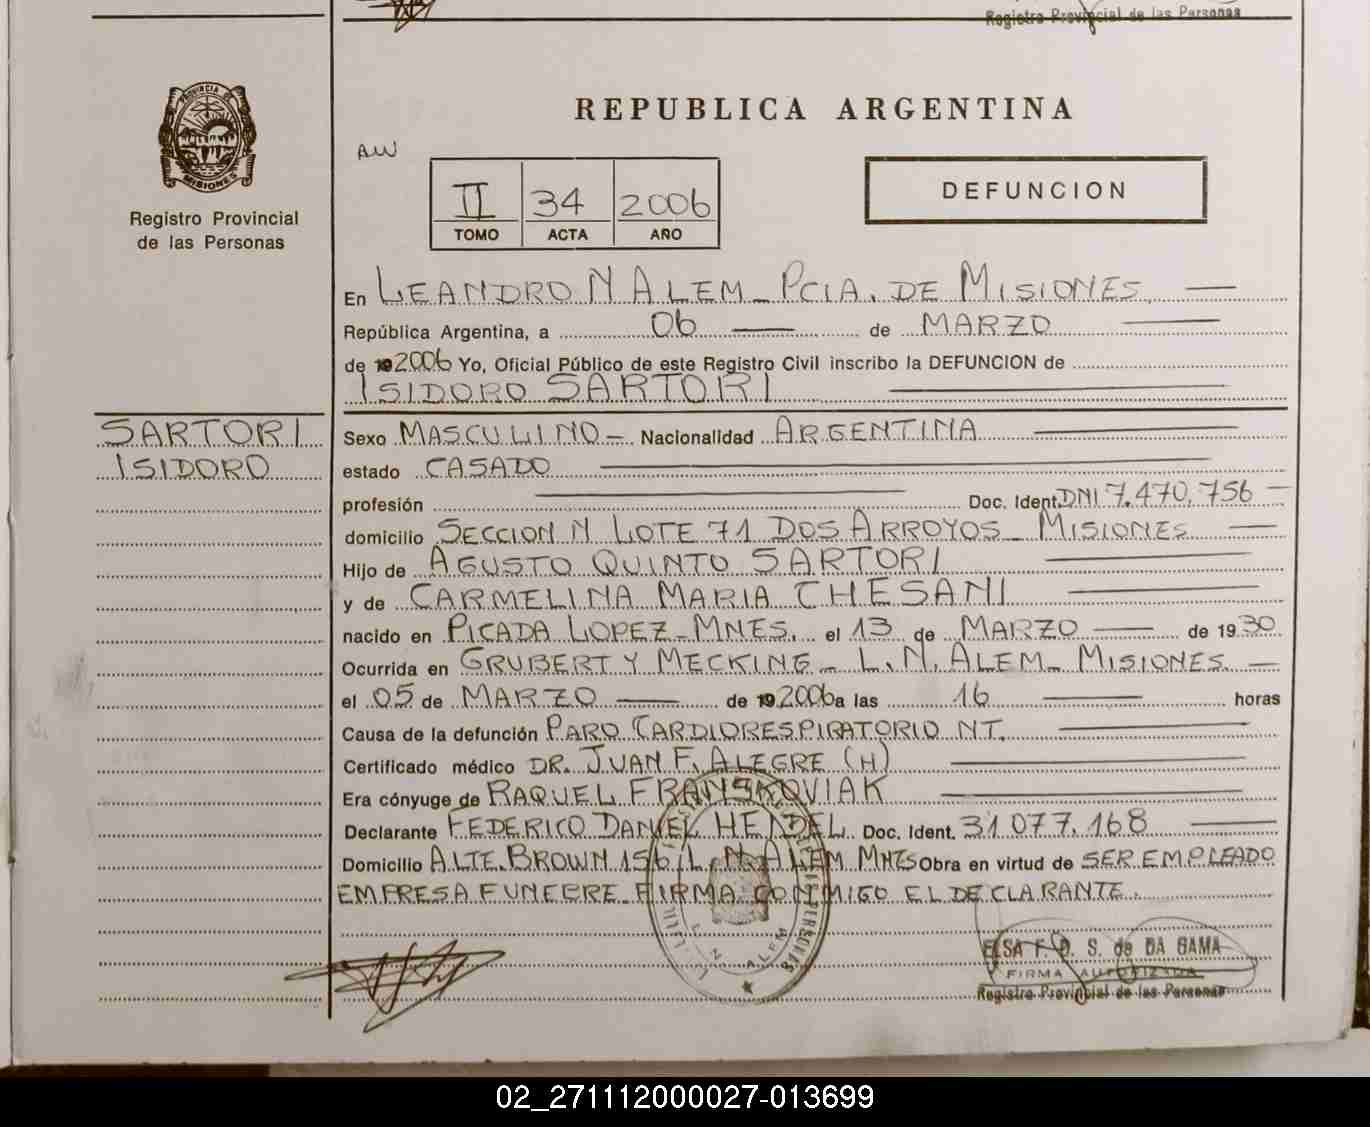 Registro Provincial de las Personas
PROVINCIA DE
MISIONES
Registro Provincial
de las Personas
REPUBLICA ARGENTINA
AW
II 34 2006
TOMO ACTA AÑO
DEFUNCION
En LEANDRO N ALEM - PCIA. DE MISIONES
República Argentina, a 06 de MARZO
de 192006 Yo, Oficial Público de este Registro Civil inscribo la DEFUNCION de
ISIDORO SARTORI
SARTORI
ISIDORO
Sexo MASCULINO - Nacionalidad ARGENTINA
estado CASADO
profesión Doc. Ident. DNI 7.470.756
domicilio SECCION N LOTE 71 DOS ARROYOS - MISIONES
Hijo de AGUSTO QUINTO SARTORI
y de CARMELINA MARIA CHESANI
nacido en PICADA LOPEZ - MNES. el 13 de MARZO de 1930
Ocurrida en GRUBERT Y MECKING - L.N. ALEM - MISIONES
el 05 de MARZO de 192006 a las 16 horas
Causa de la defunción PARO CARDIORESPIRATORIO NT.
Certificado médico DR. JUAN F. ALEGRE (H)
Era cónyuge de RAQUEL FRANSKOVIAK
Declarante FEDERICO DANIEL HENDEL Doc. Ident. 31.077.168
Domicilio ALTE. BROWN 156 L.N. ALEM MNES Obra en virtud de SER EMPLEADO
EMPRESA FUNEBRE. FIRMA CONMIGO EL DECLARANTE.
L. N. ALEM
ELSA F. D. S. de DA GAMA
FIRMA AUTORIZADA
Registro Provincial de las Personas
02_271112000027-013699